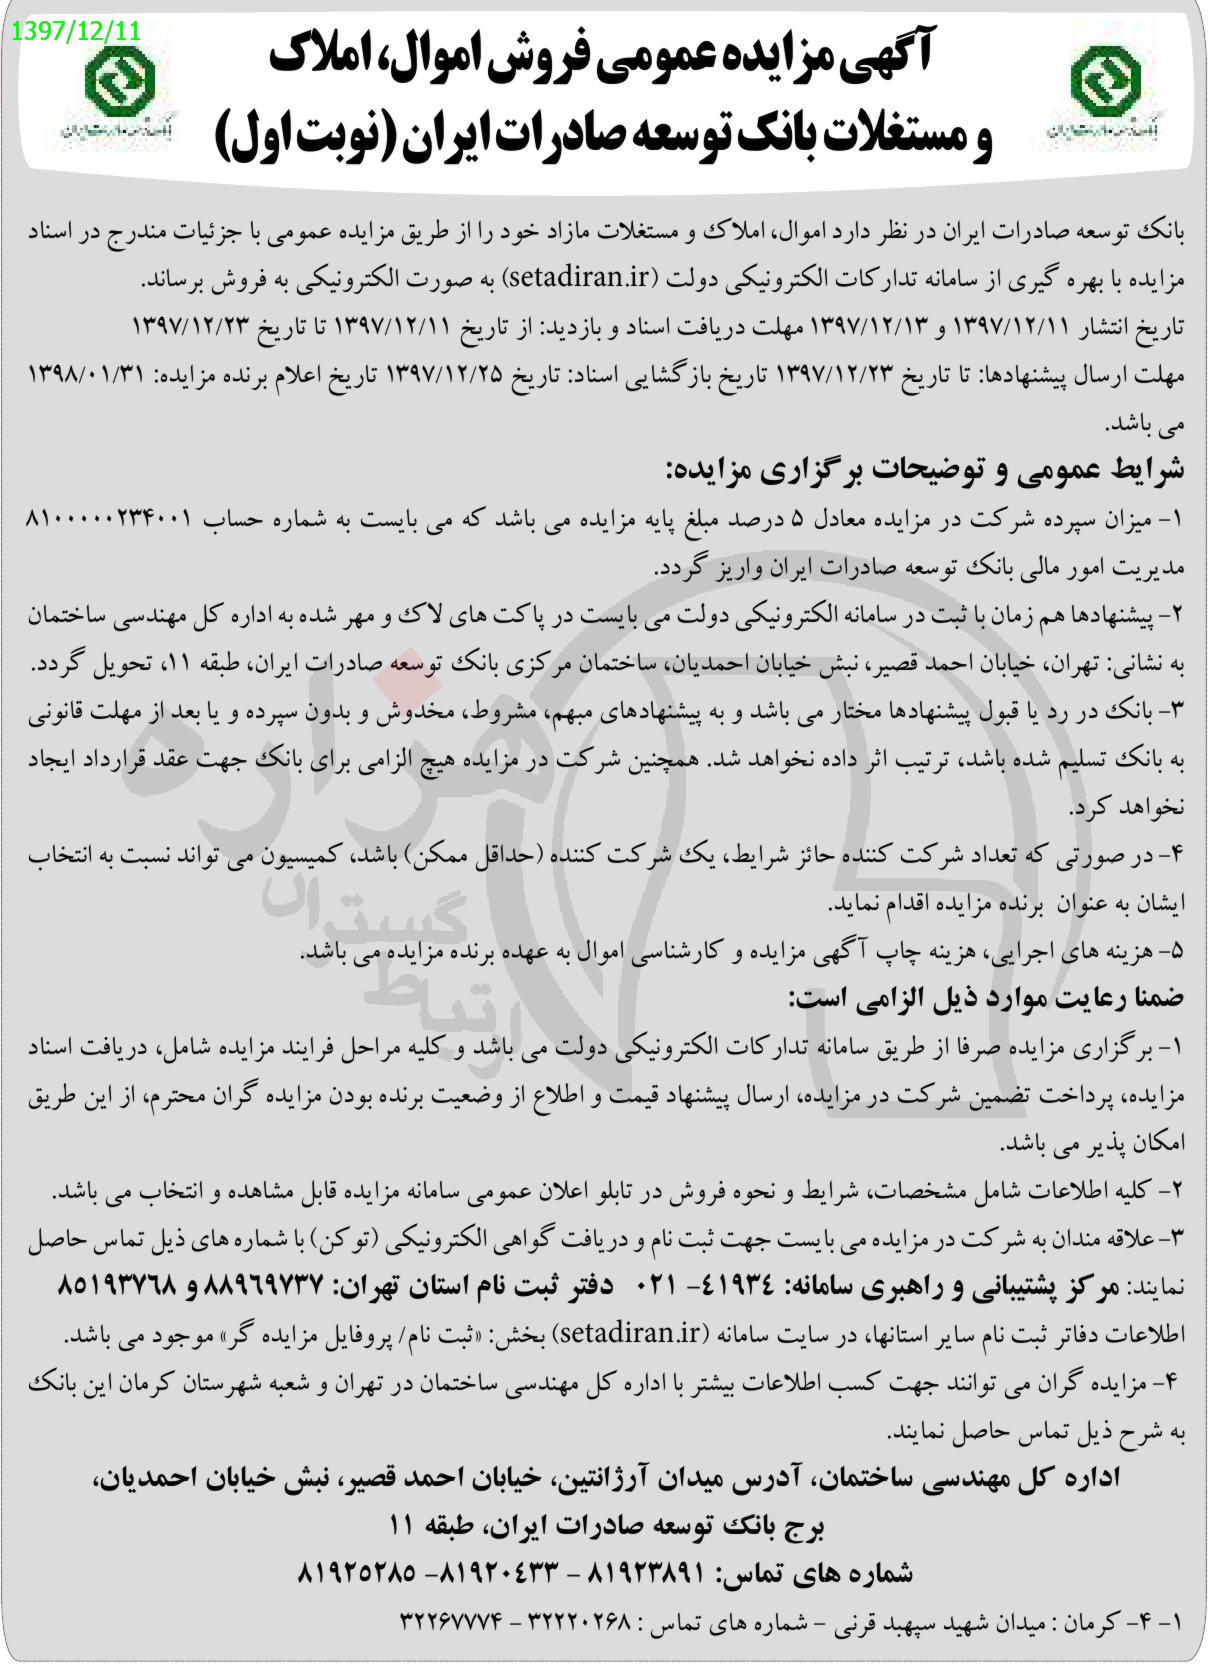 1397/12/11
آگهی مزایده عمومی فروش اموال، املاک
و مستغلات بانک توسعه صادرات ایران (نوبت اول)
بانک توسعه صادرات ایران
بانک توسعه صادرات ایران
بانک توسعه صادرات ایران در نظر دارد اموال، املاک و مستغلات مازاد خود را از طریق مزایده عمومی با جزئیات مندرج در اسناد
مزایده با بهره گیری از سامانه تدارکات الکترونیکی دولت (setadiran.ir) به صورت الکترونیکی به فروش برساند.
تاریخ انتشار ۱۳۹۷/۱۲/۱۱ و ۱۳۹۷/۱۲/۱۳ مهلت دریافت اسناد و بازدید: از تاریخ ۱۳۹۷/۱۲/۱۱ تا تاریخ ۱۳۹۷/۱۲/۲۳
مهلت ارسال پیشنهادها: تا تاریخ ۱۳۹۷/۱۲/۲۳ تاریخ بازگشایی اسناد: تاریخ ۱۳۹۷/۱۲/۲۵ تاریخ اعلام برنده مزایده: ۱۳۹۸/۰۱/۳۱
می باشد.
شرایط عمومی و توضیحات برگزاری مزایده:
۱- میزان سپرده شرکت در مزایده معادل ۵ درصد مبلغ پایه مزایده می باشد که می بایست به شماره حساب ۸۱۰۰۰۰۰۰۲۳۴۰۰۱
مدیریت امور مالی بانک توسعه صادرات ایران واریز گردد.
۲- پیشنهادها هم زمان با ثبت در سامانه الکترونیکی دولت می بایست در پاکت های لاک و مهر شده به اداره کل مهندسی ساختمان
به نشانی: تهران، خیابان احمد قصیر، نبش خیابان احمدیان، ساختمان مرکزی بانک توسعه صادرات ایران، طبقه ۱۱، تحویل گردد.
۳- بانک در رد یا قبول پیشنهادها مختار می باشد و به پیشنهادهای مبهم، مشروط، مخدوش و بدون سپرده و یا بعد از مهلت قانونی
به بانک تسلیم شده باشد، ترتیب اثر داده نخواهد شد. همچنین شرکت در مزایده هیچ الزامی برای بانک جهت عقد قرارداد ایجاد
نخواهد کرد.
۴- در صورتی که تعداد شرکت کننده حائز شرایط، یک شرکت کننده (حداقل ممکن) باشد، کمیسیون می تواند نسبت به انتخاب
ایشان به عنوان برنده مزایده اقدام نماید.
۵- هزینه های اجرایی، هزینه چاپ آگهی مزایده و کارشناسی اموال به عهده برنده مزایده می باشد.
ضمنا رعایت موارد ذیل الزامی است:
۱- برگزاری مزایده صرفا از طریق سامانه تدارکات الکترونیکی دولت می باشد و کلیه مراحل فرایند مزایده شامل، دریافت اسناد
مزایده، پرداخت تضمین شرکت در مزایده، ارسال پیشنهاد قیمت و اطلاع از وضعیت برنده بودن مزایده گران محترم، از این طریق
امکان پذیر می باشد.
۲- کلیه اطلاعات شامل مشخصات، شرایط و نحوه فروش در تابلو اعلان عمومی سامانه مزایده قابل مشاهده و انتخاب می باشد.
۳- علاقه مندان به شرکت در مزایده می بایست جهت ثبت نام و دریافت گواهی الکترونیکی (توکن) با شماره های ذیل تماس حاصل
نمایند: مرکز پشتیبانی و راهبری سامانه: ۴۱۹۳۴- ۰۲۱ دفتر ثبت نام استان تهران: ۸۸۹۶۹۷۳۷ و ۸۵۱۹۳۷۶۸
اطلاعات دفاتر ثبت نام سایر استانها، در سایت سامانه (setadiran.ir) بخش: «ثبت نام/ پروفایل مزایده گر» موجود می باشد.
۴- مزایده گران می توانند جهت کسب اطلاعات بیشتر با اداره کل مهندسی ساختمان در تهران و شعبه شهرستان کرمان این بانک
به شرح ذیل تماس حاصل نمایند.
اداره کل مهندسی ساختمان، آدرس میدان آرژانتین، خیابان احمد قصیر، نبش خیابان احمدیان،
برج بانک توسعه صادرات ایران، طبقه ۱۱
شماره های تماس: ۸۱۹۲۳۸۹۱ - ۸۱۹۲۰۴۳۳- ۸۱۹۲۵۲۸۵
۱- ۴- کرمان : میدان شهید سپهبد قرنی - شماره های تماس : ۳۲۲۲۰۲۶۸ - ۳۲۲۶۷۷۷۴
هزاره
گستران
ارتباط